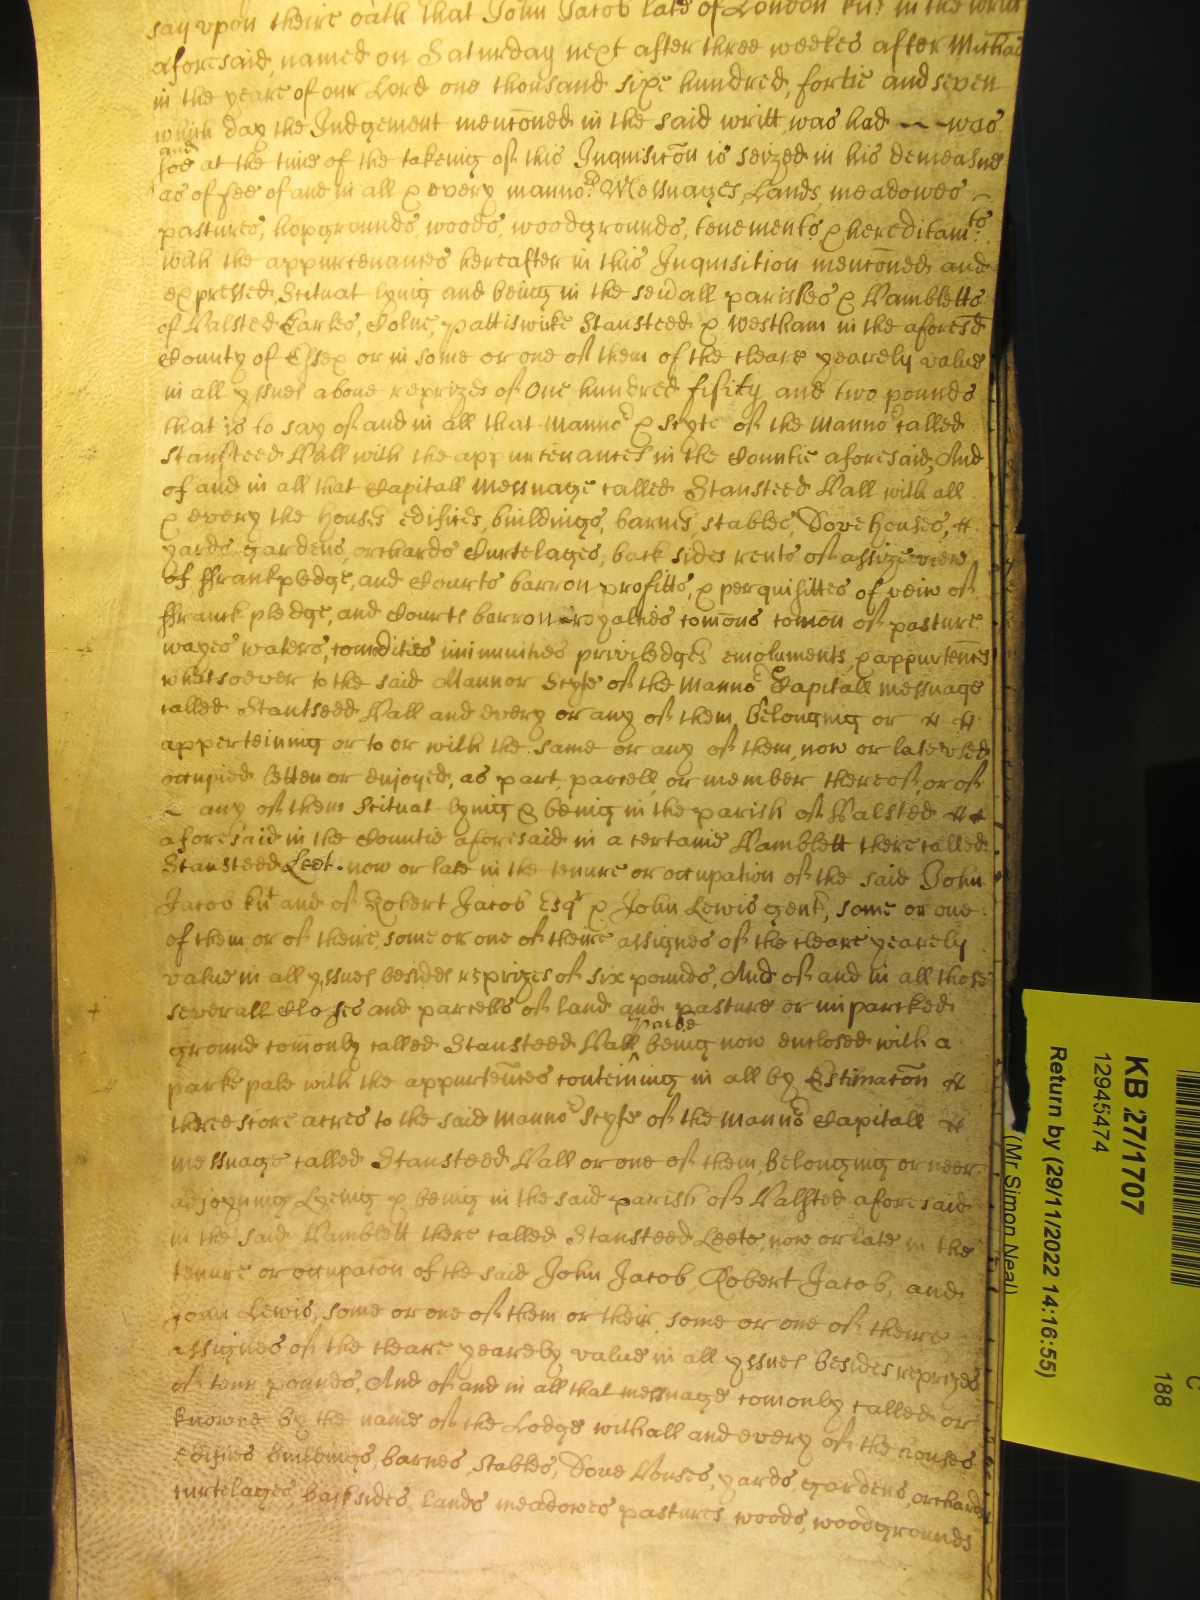 say upon theire oath that John Jacob late of London knt in the writt
aforesaid, named on Saturday next after three weekes after Michael
in the yeare of our Lord one thousand sixe hundred, fortie and seven
which day the Judgement mencōned in the said writt was had was
and
soe at the time of the takeing of this Inquisicōn is seized in his demeasne
as of fee of and in all & every mannor Messuages, Lands, meadowes
pastures, hopgrounds, woods, woodgrounds, tenements & hereditamts
with the appurtenances hereafter in this Inquisition mencōned and
expressed Scituat lyeing and being in the severall parishes & Hambletts
of Halsted Earles, Colne, pattiswicke Stansteed & Westham in the aforesd
County of Essex or in some or one of them of the cleare yearely value
in all yssues above reprizes of One hundred fifity and two pounds
that is to say of and in all that Manno & scyte of the Manno called
Stansteed Hall with the appurtenances in the Countie aforesaid, And
of and in all that Capitall messuage called Stansteed Hall with all
& every the houses edifices, buildings, barnes, stables, Dovehouses, &
yards gardens, orchards Curtelages, back sides rents of assize view
of ffrankpledge, and Courts barron profitts, & perquisittes of veiw of
ffranck pledge, and Courts barron royalties comōns comōn of pasture
wayes waters, comodities immunities priviledges emoluments, & appurtences
whatsoever to the said Mannor Scyte of the Manno Capitall messuage
called Stantseed Hall and every or any of them belonging or
apperteining or to or with the same or any of them, now or late used
occupied letten or enjoyed, as part, parcell, or member thereof, or of
any of them Scituat lyeing & being in the parish of Halsted
aforesaid in the Countie aforesaid in a certaine Hamblett there called
Stansteed Leet now or late in the tenure or occupation of the said John
Jacob knt and of Robert Jacob Esqr & John Lewis gent, some or one
of them or of theire, some or one of theire assignes of the cleare yearely
value in all yssues besides reprizes of six pounds, And of and in all those
severall Closes and parcells of land and pasture or imparcked
parke
ground comōnly called Stansteed Hall being now enclosed with a
parke pale with the appurtēnces conteining in all by Estimacōn
threescore acres to the said manno Scyte of the manno Capitall
messuage called Stansteed Hall or one of them, belonging or neer
adjoyning Lyeing & being in the said parish of Halsted aforesaid
in the said Hamblett there called Stansteed Leete, now or late in the
tenure or occupacōn of the said John Jacob, Robert Jacob, and
John Lewis, some or one of them or their some or one of theire
assignes of the cleare yearely value in all yssues besides reprizes
of four pounds, And of and in all that messuage comonly called or
knowne by the name of the Lodge with all and every of the houses
edifies buildings, barnes, stables, Dove Houses, yards gardens, orchards
curtelages, backsides, lands meadowes pastures woods, woodgrounds
KB 27/1707
12945474
Return by (29/11/2022 14:16:55)
(Mr Simon Neal)
188
C